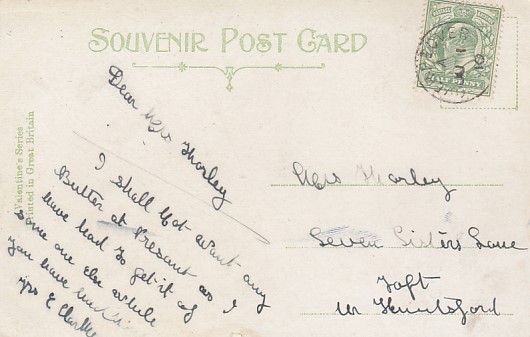 SOUVENIR POST CARD
Valentine's Series
Printed in Great Britain
Dear Mrs Thorley
I shall Not want any
Butter at Presant as I
have had to get it of
some one else while
you have
Mrs E
Mrs Thorley
Seven Sisters Lane
Toft
Nr Knutsford